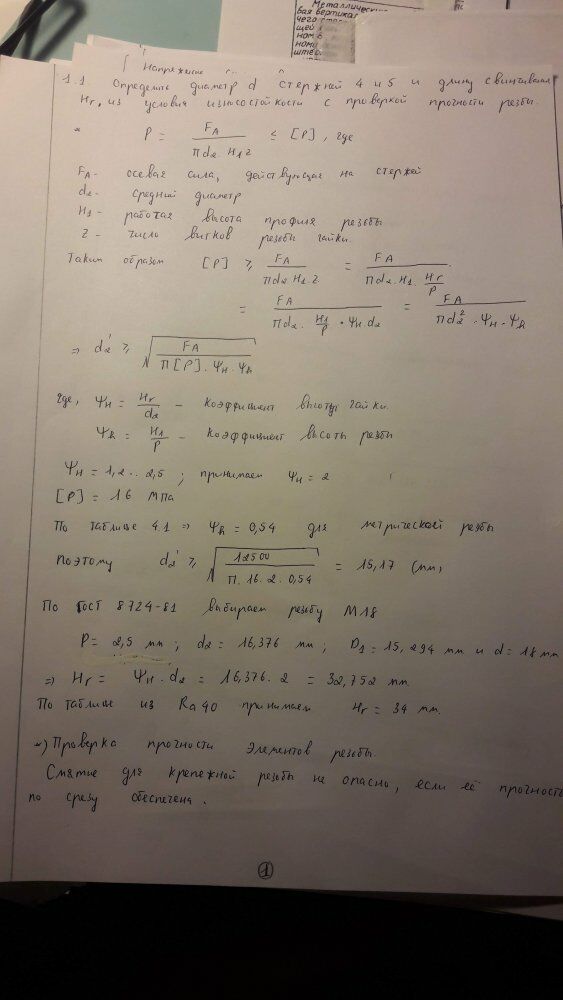 Металлический
бая вертикал
чего
щей
ном
номи
штев.
Напряжение
1.1 Определить диаметр d стержней 4 и 5 и длину свинчивания
Hг, из условия износостойкости с проверкой прочности резьбы.
P = FA / (π d₂ · H₁ · z) ≤ [P], где
FA - осевая сила, действующая на стержей
d₂ - средний диаметр
H₁ - рабочая высота профиля резьбы
z - число витков резьбы гайки.
Таким образом [P] ≥ FA / (π d₂ H₁ · z) = FA / (π d₂ · H₁ · Hг/P)
= FA / (π d₂ · H₁/P · Ψн · d₂) = FA / (π d₂² · Ψн · Ψh)
⇒ d₂' ≥ √(FA / (π [P] · Ψн · Ψh))
где, Ψн = Hг/d₂ - коэффициент высоты гайки.
Ψh = H₁/P - коэффициент высоты резьбы
Ψн = 1,2 .. 2,5 ; принимаем Ψн = 2
[P] = 16 МПа
По таблице 4.1 ⇒ Ψh = 0,54 для метрической резьбы
Поэтому d₂' ≥ √(12500 / (π. 16. 2. 0,54)) = 15,17 (мм)
По ГОСТ 8724-81 выбираем резьбу М18
P = 2,5 мм ; d₂ = 16,376 мм ; D₁ = 15,294 мм и d = 18 мм
⇒ Hг = Ψн · d₂ = 16,376 · 2 = 32,752 мм
По таблице из Ra40 принимаем Hг = 34 мм.
*) Проверка прочности элементов резьбы.
Смятие для крепежной резьбы не опасно, если её прочность
по срезу обеспечена.
1